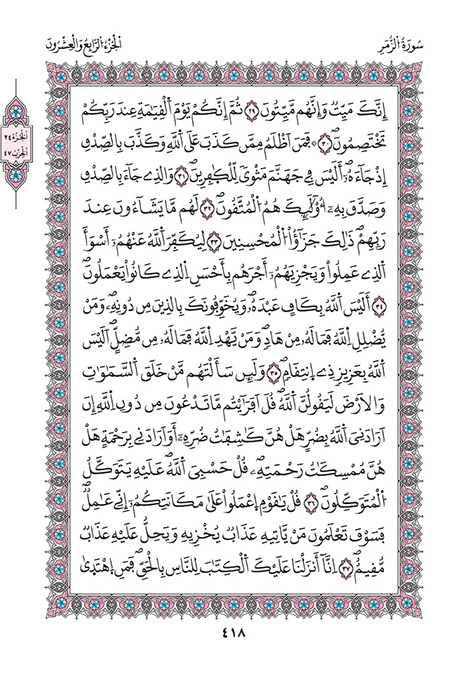 سُورَةُ الزُّمَرِ
الْجُزْءُ الرَّابِعُ وَالْعِشْرُونَ
الجزء ٢٤
الحزب ٤٧
إِنَّكَ مَيِّتٌ وَإِنَّهُم مَّيِّتُونَ ٢٩ ثُمَّ إِنَّكُمْ يَوْمَ اَلْقِيَٰمَةِ عِندَ رَبِّكُمْ
تَخْتَصِمُونَ ٣٠ فَمَنَ اَظْلَمُ مِمَّن كَذَبَ عَلَى اَللَّهِ وَكَذَّبَ بِالصِّدْقِ
إِذْ جَآءَهُۥٓ أَلَيْسَ فِے جَهَنَّمَ مَثْوىً لِّلْكٰ۪فِرِينَ ٣١ وَالذِے جَآءَ بِالصِّدْقِ
وَصَدَّقَ بِهِۦٓ أُوْلَٰٓئِكَ هُمُ اُلْمُتَّقُونَ ٣٢ لَهُم مَّا يَشَآءُونَ عِندَ
رَبِّهِمْ ذَٰلِكَ جَزَٰٓؤُاْ اُلْمُحْسِنِينَ ٣٣ لِيُكَفِّرَ اَللَّهُ عَنْهُمُۥٓ أَسْوَأَ
اَلذِے عَمِلُواْ وَيَجْزِيَهُمُۥٓ أَجْرَهُم بِأَحْسَنِ اِلذِے كَانُواْ يَعْمَلُونَ
٣٤ أَلَيْسَ اَللَّهُ بِكَافٍ عَبْدَهُۥ وَيُخَوِّفُونَكَ بِالذِينَ مِن دُونِهِۦ وَمَنْ
يُّضْلِلِ اِللَّهُ فَمَا لَهُۥ مِنْ هَادٍ وَمَنْ يَّهْدِ اِللَّهُ فَمَا لَهُۥ مِن مُّضِلٍّ اَلَيْسَ
اَللَّهُ بِعَزِيزٍ ذِے اِنتِقَامٍ ٣٥ وَلَئِن سَأَلْتَهُم مَّنْ خَلَقَ اَلسَّمَٰوَٰتِ
وَالَارْضَ لَيَقُولُنَّ اَللَّهُ قُلَ اَفَرَٰٓيْتُم مَّا تَدْعُونَ مِن دُونِ اِللَّهِ إِنَ
اَرَادَنِيَ اَللَّهُ بِضُرٍّ هَلْ هُنَّ كَٰشِفَٰتُ ضُرِّهِۦٓ أَوَ اَرَادَنِے بِرَحْمَةٍ هَلْ
هُنَّ مُمْسِكَٰتُ رَحْمَتِهِۦ قُلْ حَسْبِيَ اَللَّهُ عَلَيْهِ يَتَوَكَّلُ
اُلْمُتَوَكِّلُونَ ٣٦ قُلْ يَٰقَوْمِ اِعْمَلُواْ عَلَىٰ مَكَانَتِكُمُۥٓ إِنِّے عَٰمِلٌ
فَسَوْفَ تَعْلَمُونَ مَنْ يَّاتِيهِ عَذَابٌ يُخْزِيهِ وَيَحِلُّ عَلَيْهِ عَذَابٌ
مُّقِيمٌ ٣٧ اِنَّآ أَنزَلْنَا عَلَيْكَ اَلْكِتَٰبَ لِلنَّاسِ بِالْحَقِّ فَمَنِ اِهْتَد۪يٰ
٤١٨